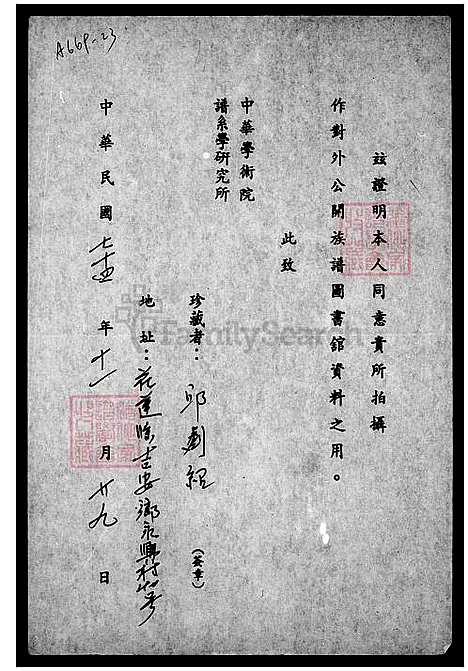 A669-23
茲證明本人同意貴所拍攝
作對外公開族譜圖書館資料之用。
此致
中華學術院
譜系學研究所
珍藏者：邱創
(簽章)
地址：花蓮縣吉安鄉永興村
中華民國七十四年十一月廿九日
FamilySearch